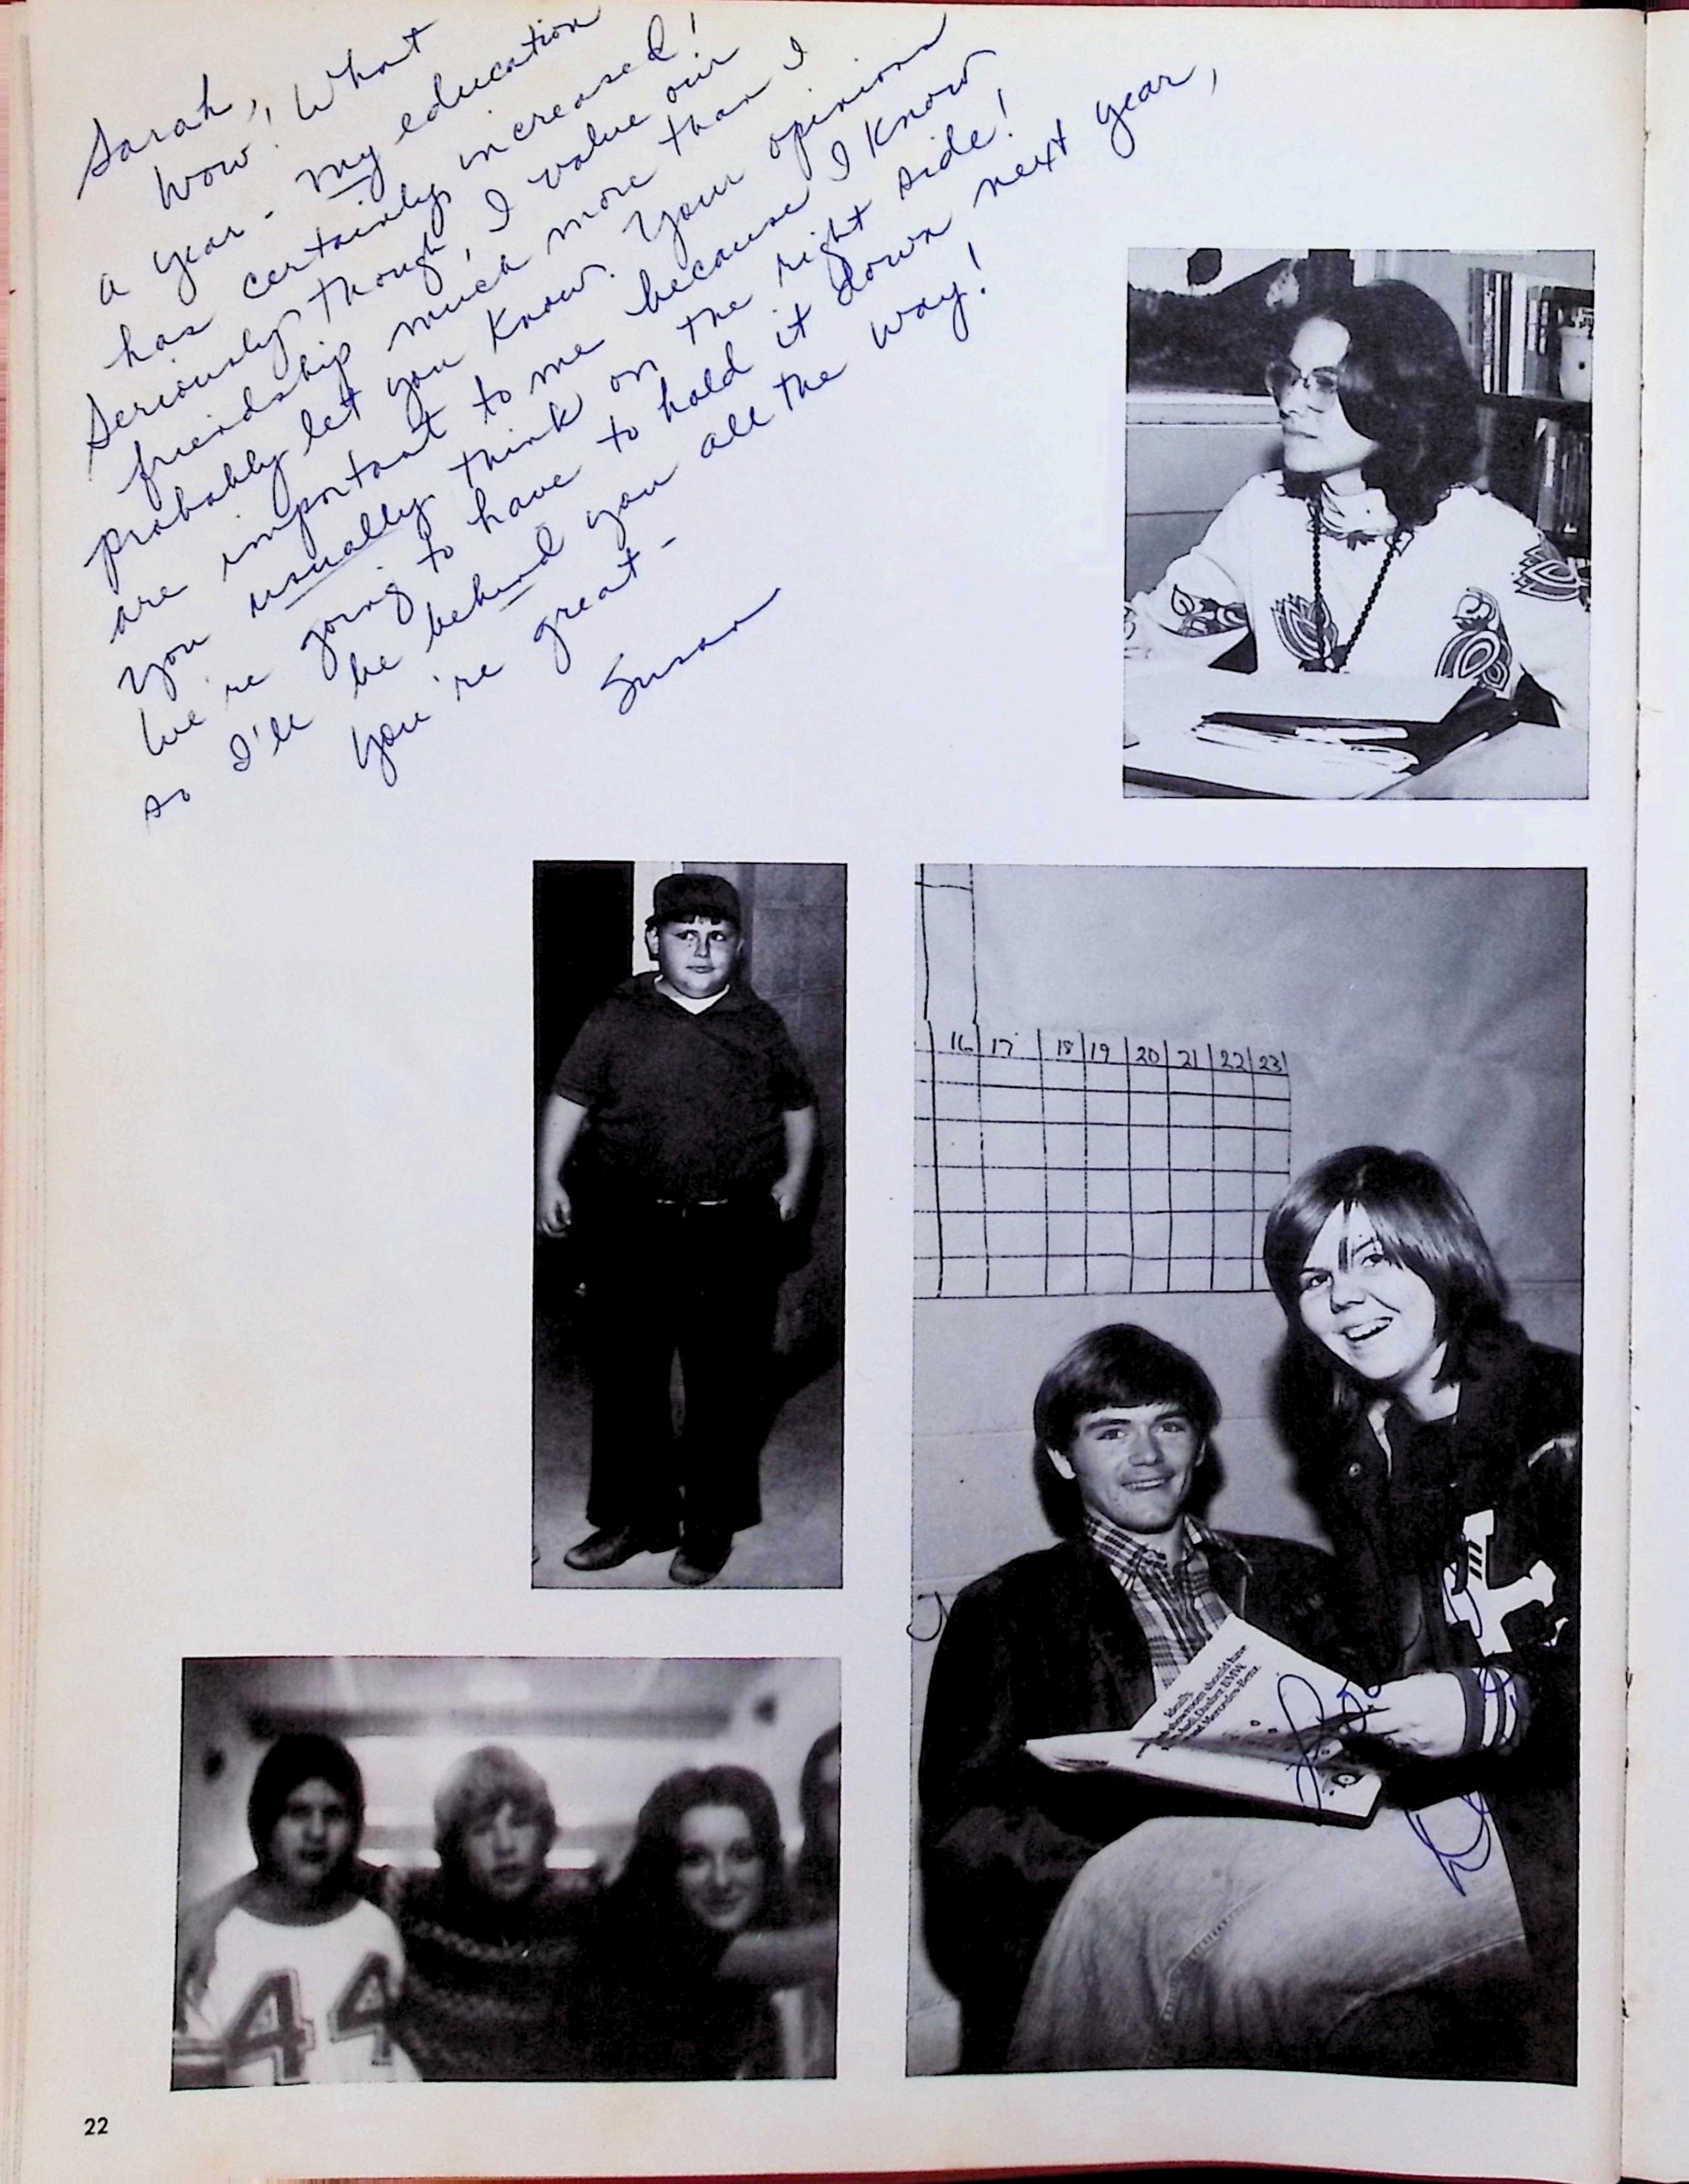 Sarah,
Wow! What
a year - my education
has certainly increased!
Seriously though, I value our
friendship much more than I
probably let you know. Your opinions
are important to me because I know
you usually think on the right side!
We're going to have to hold it down next year,
so I'll be behind you all the way!
You're great -
Susan
16 17 18 19 20 21 22 23
Ideally,
showroom should have
Audi, Dasher, BMW,
and Mercedes-Benz.
44
22